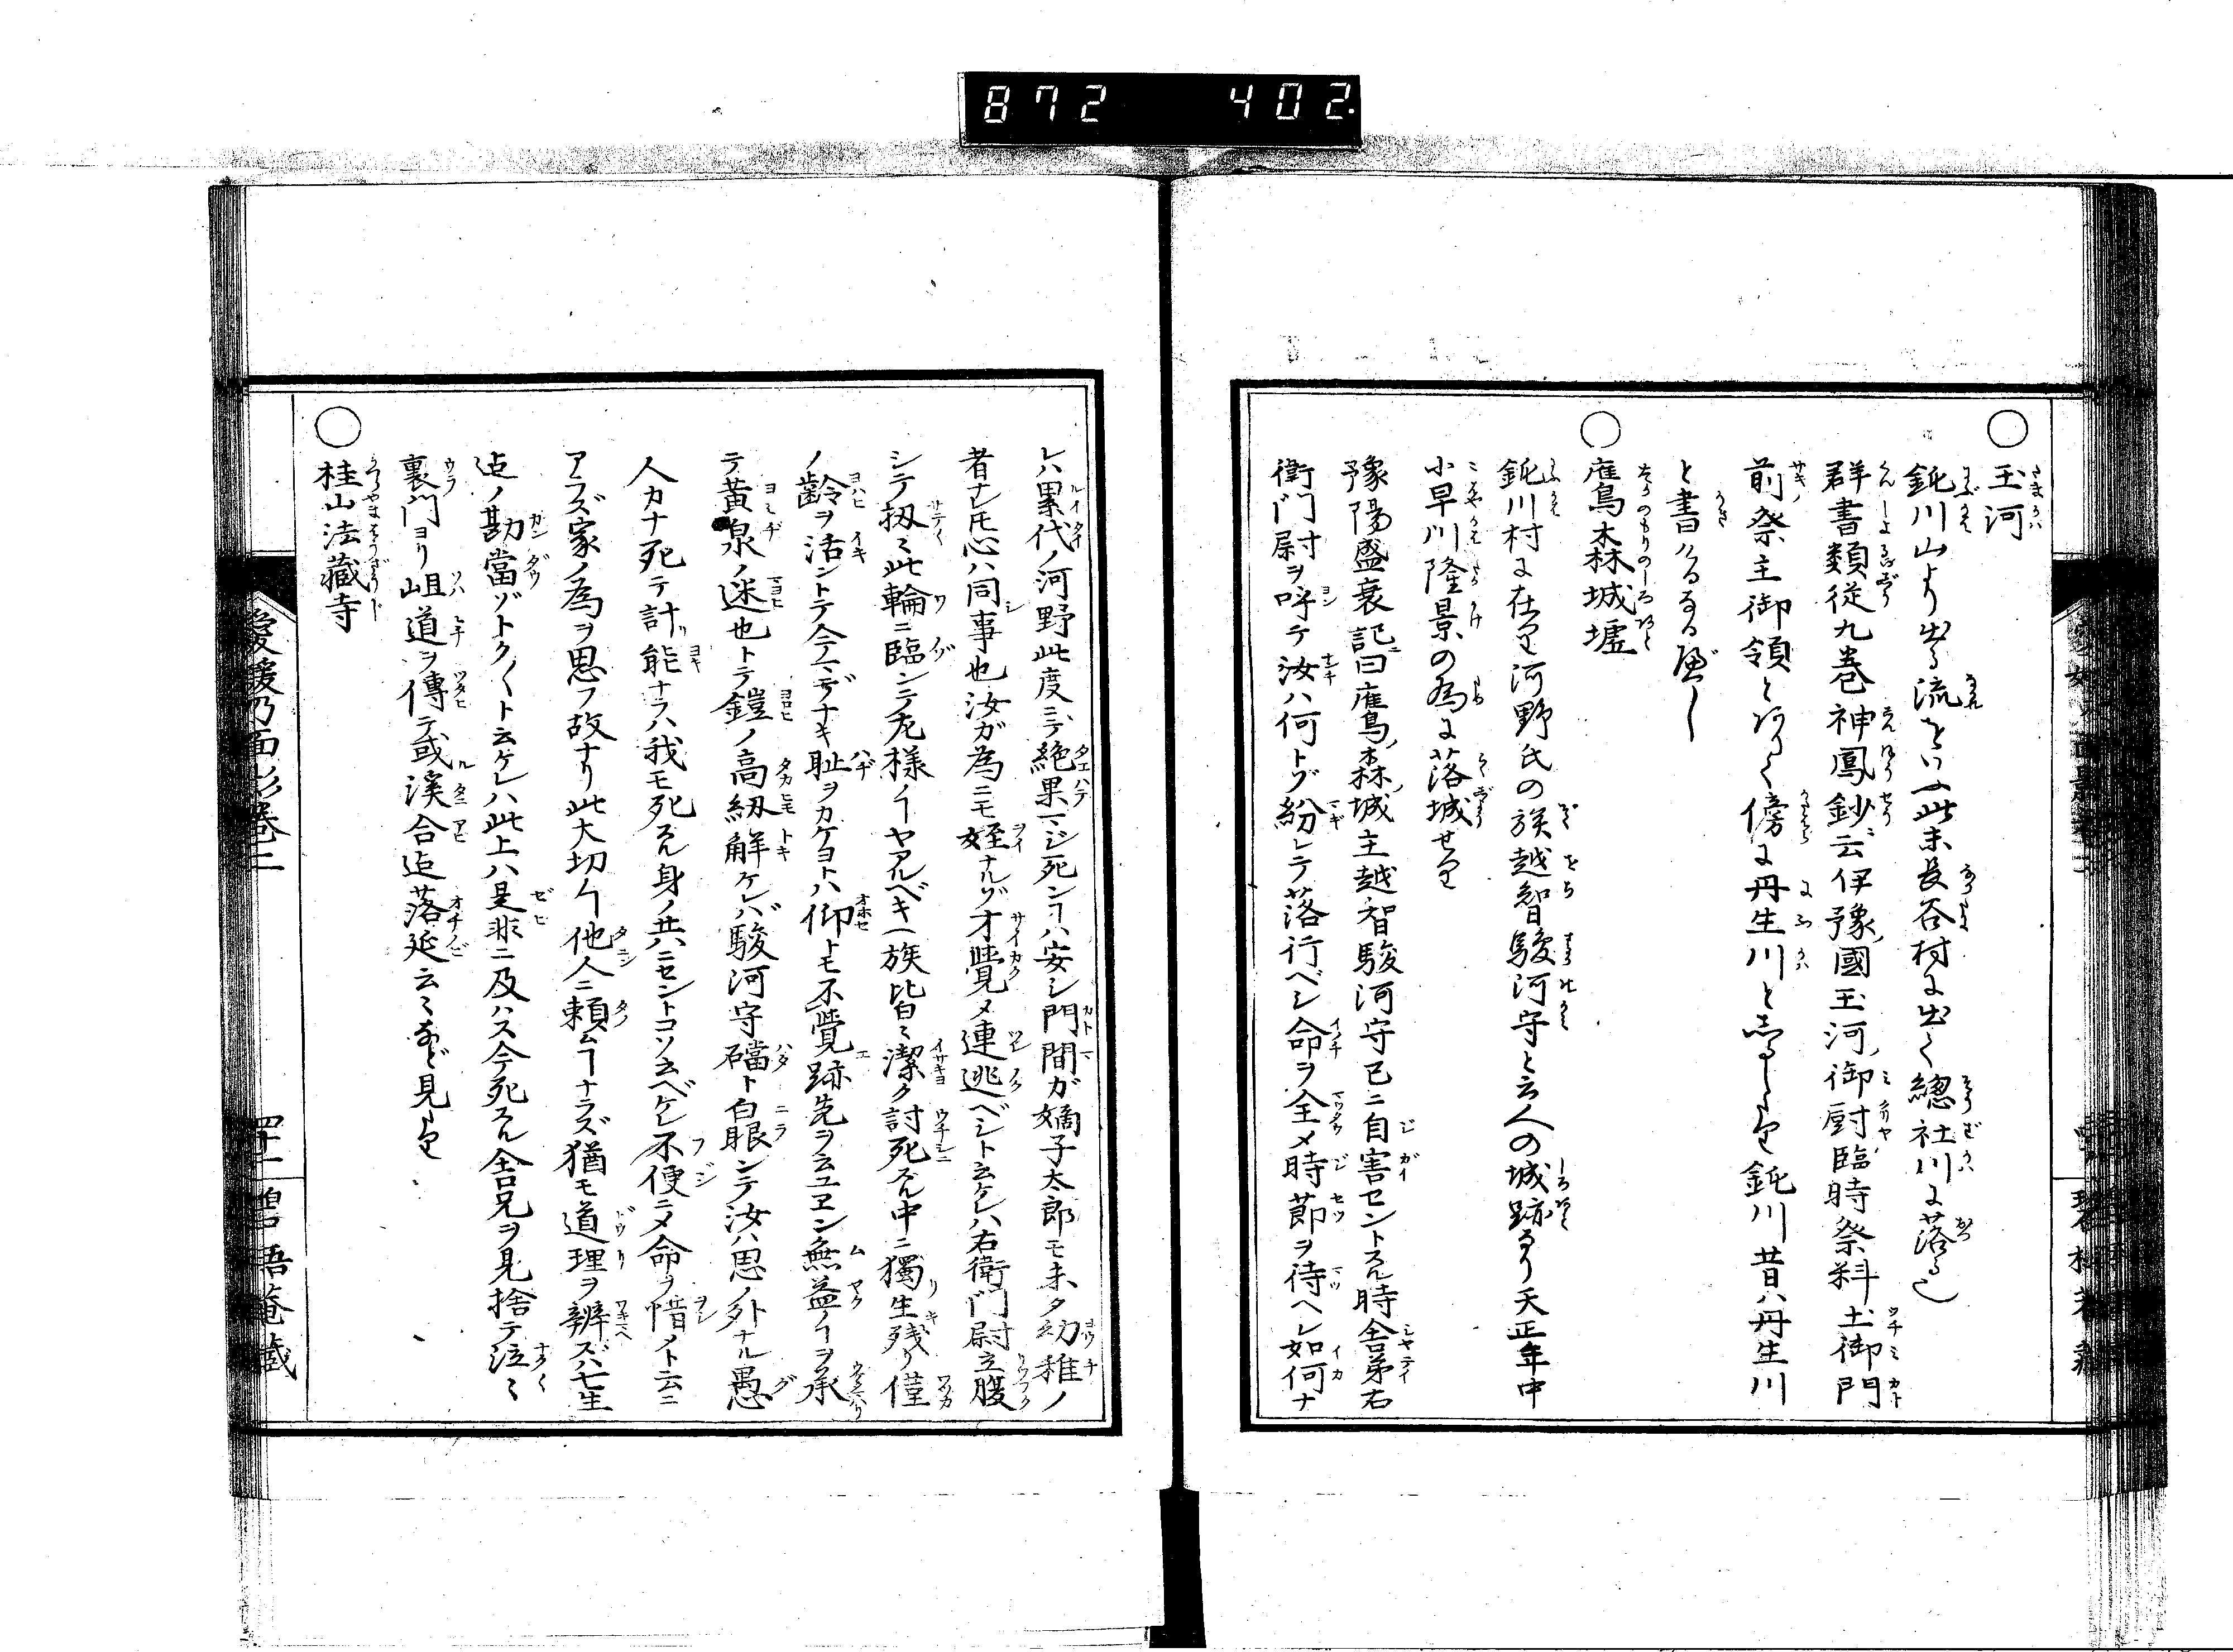 872 402.
○玉河
鈍川山より出る流をいふ此末長谷村に出て總社川に落る
群書類従九巻神鳳鈔ニ云伊豫ノ國玉河ノ御厨臨時祭料土御門
前祭主御領とありて傍に丹生川としるしたり鈍川昔ハ丹生川
と書ける
○鷹鳥森城墟
鈍川村に在り河野氏の族越智駿河守と云人の城跡なり天正年中
小早川隆景の為に落城せり
豫陽盛衰記ニ曰鷹鳥ノ森ノ城主越智駿河守已ニ自害セントスル時舎弟右
衛門尉ヲ呼テ汝ハ何トゾ紛レテ落行ベシ命ヲ全メ時節ヲ待ヘシ如何ナ
レハ累代ノ河野此度ニテ絶果マジ死ンヿハ安シ門間ガ嫡子太郎モ未タ幼稚ノ
者ナレ𪜈心ハ同事也汝ガ為ニモ姪ナルゾ才覺メ連逃ベシト云ケレハ右衛門尉立腹
シテ扨ミ此輪ニ臨ンテ左様ノヿヤアルベキ一族皆ミ潔ク討死スル中ニ獨生残リ僅
ノ齢ヲ活ントテ今マデナキ耻ヲカケヨトハ仰トモ不覺跡先ヲ云ユヱン無益ノヿヲ承
テ黄泉ノ迷也トテ鎧ノ高紐解ケレバ駿河守礑ト白眼ンテ汝ハ思ノ外ナル愚
人カナ死テ計能ナラハ我モ死スル身ノ共ハニセントコソ云ベケレ不便ニメ命ヲ惜メト云ニ
アラズ家ノ為ヲ思フ故ナリ此大切ヲ他人ニ頼ムヿナラズ猶モ道理ヲ辨ズバ七生
迠ノ勘當ゾトク〱ト云ケレハ此上ハ是非ニ及ハス今死スル舎兄ヲ見捨テ泣ミ
裏門ヨリ岨道ヲ傳テ或溪合迠落延云ミなど見たり
○桂山法藏寺
愛媛乃面影巻二 四十一 碧梧菴藏